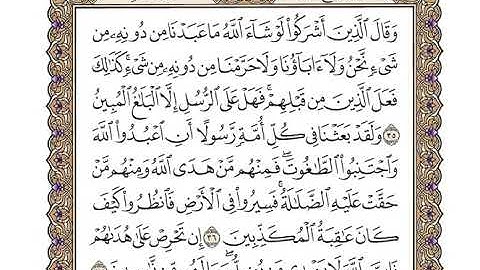 وَقَالَ ٱلَّذِينَ أَشْرَكُوا۟ لَوْ شَآءَ ٱللَّهُ مَا عَبَدْنَا مِن دُونِهِۦ مِن
شَىْءٍ نَّحْنُ وَلَآ ءَابَآؤُنَا وَلَا حَرَّمْنَا مِن دُونِهِۦ مِن شَىْءٍ ۚ كَذَٰلِكَ
فَعَلَ ٱلَّذِينَ مِن قَبْلِهِمْ ۚ فَهَلْ عَلَى ٱلرُّسُلِ إِلَّا ٱلْبَلَٰغُ ٱلْمُبِينُ
٣٥ وَلَقَدْ بَعَثْنَا فِى كُلِّ أُمَّةٍ رَّسُولًا أَنِ ٱعْبُدُوا۟ ٱللَّهَ
وَٱجْتَنِبُوا۟ ٱلطَّٰغُوتَ ۖ فَمِنْهُم مَّنْ هَدَى ٱللَّهُ وَمِنْهُم مَّنْ
حَقَّتْ عَلَيْهِ ٱلضَّلَٰلَةُ ۚ فَسِيرُوا۟ فِى ٱلْأَرْضِ فَٱنظُرُوا۟ كَيْفَ
كَانَ عَٰقِبَةُ ٱلْمُكَذِّبِينَ ٣٦ إِن تَحْرِصْ عَلَىٰ هُدَىٰهُمْ